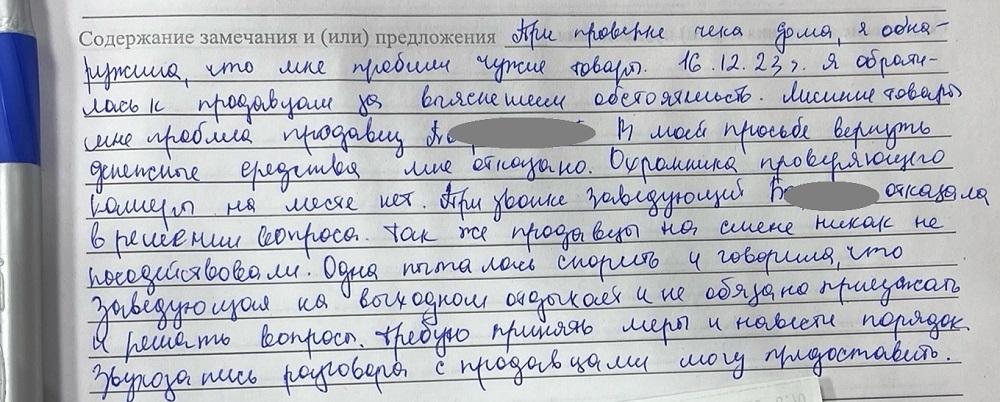 Содержание замечания и (или) предложения При проверке чека дома, я обна-
ружила, что мне пробили чужие товары. 16.12.23г. я обрати-
лась к продавцам за выяснением обстоятельств. Лишние товары
мне пробила продавец В моей просьбе вернуть
денежные средства мне отказано. Охранника проверяющего
камеры на месте нет. При звонке заведующий отказала
в решении вопроса. Так же продавцы на смене никак не
посодействовали. Одна пыталась спорить и говорила, что
заведующая на выходном отдыхает и не обязана приезжать
и решать вопросы. Требую принять меры и навести порядок
Звукозапись разговора с продавцами могу предоставить.